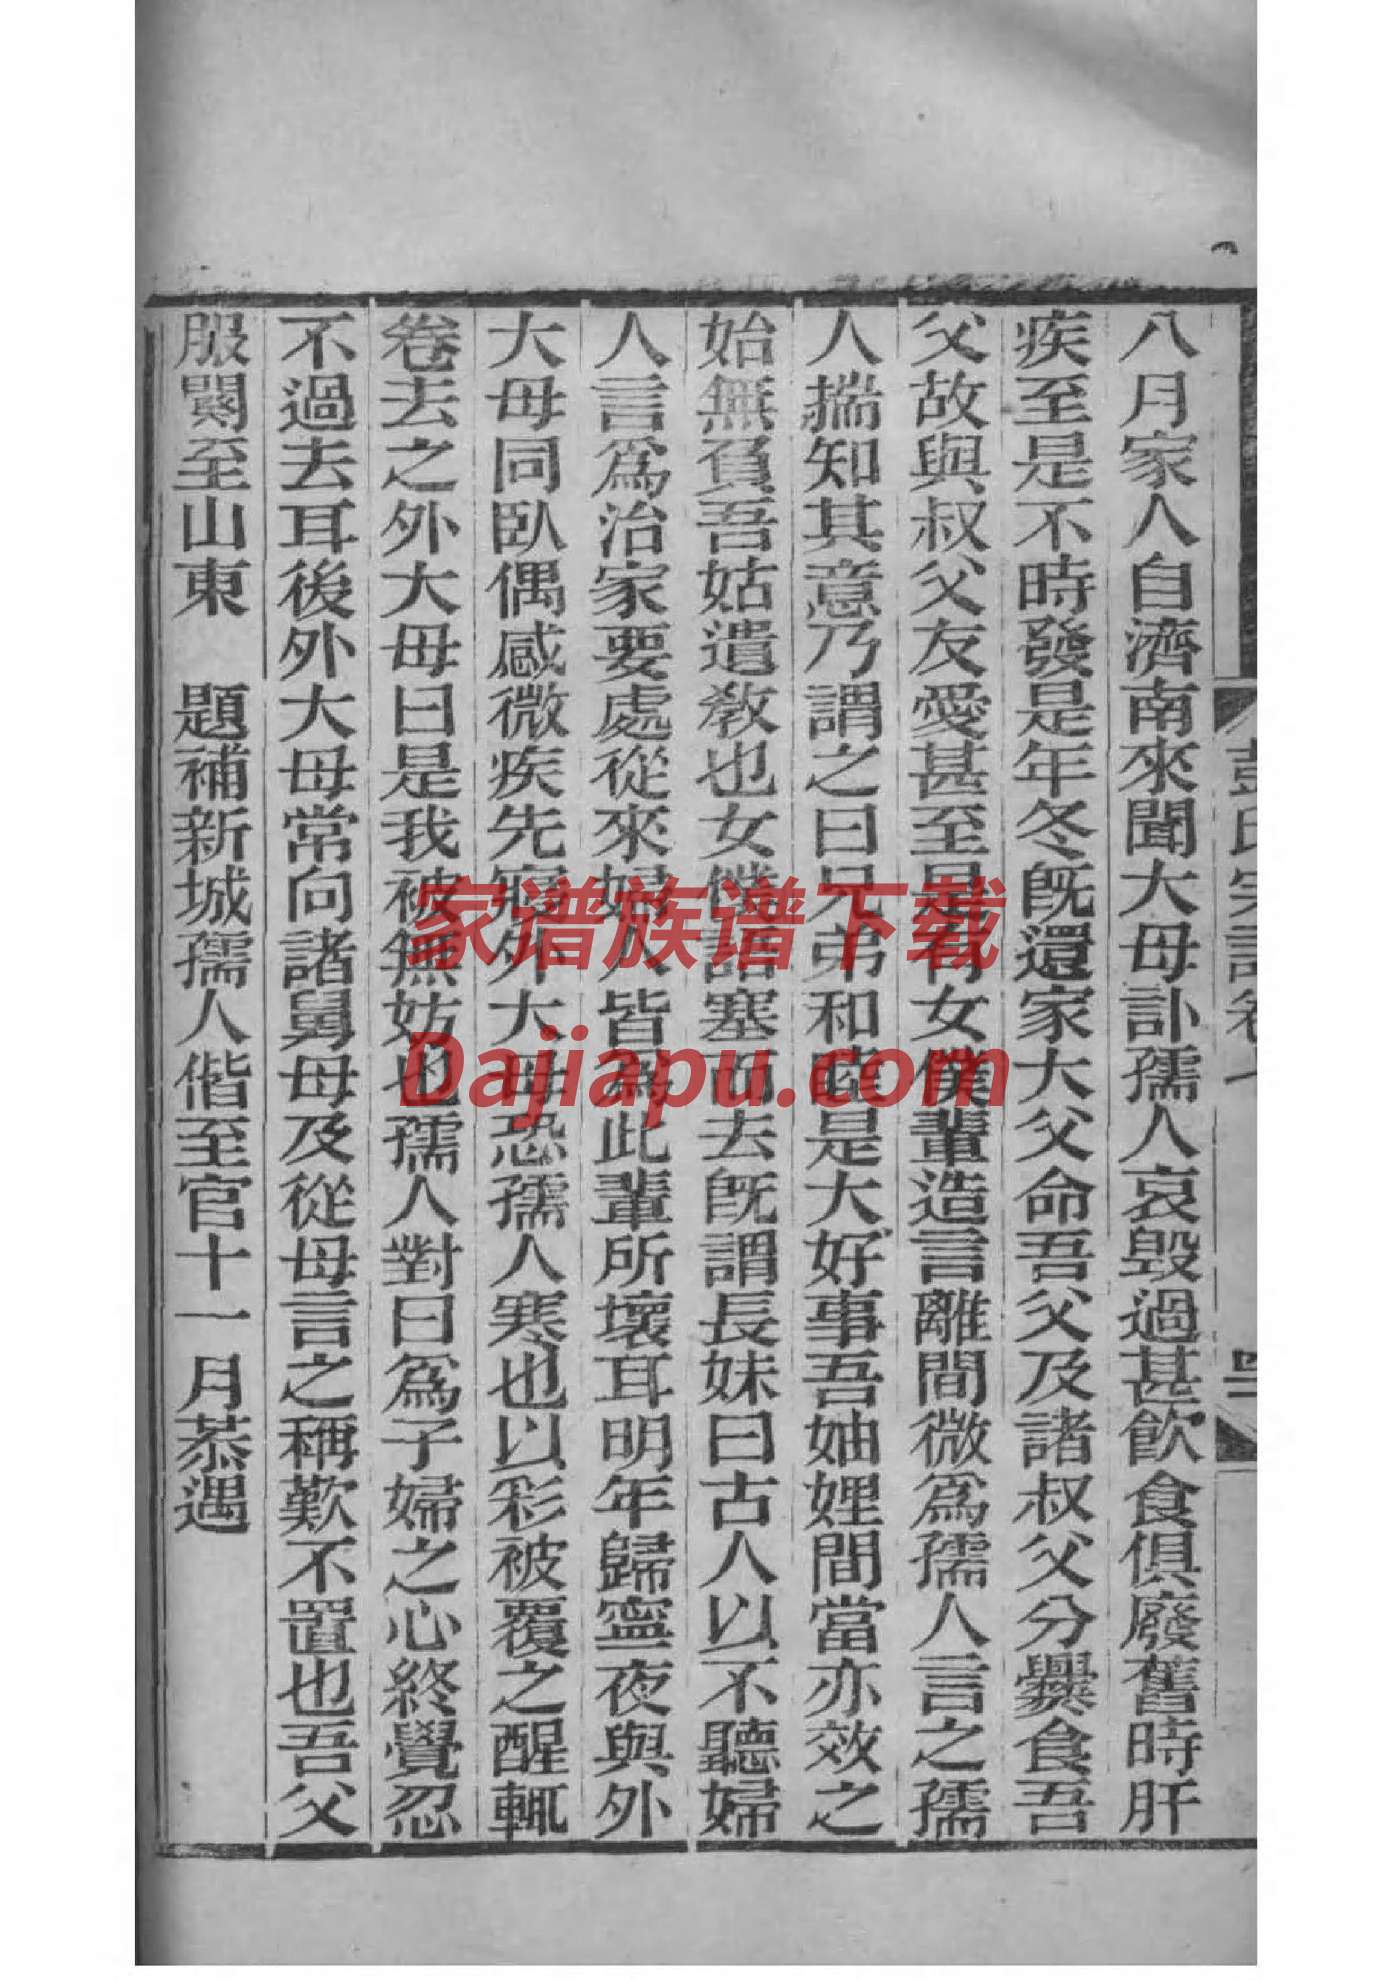 八月家人自濟南來聞大母訃孺人哀毀過甚飲食俱廢舊時肝
疾至是不時發是年冬旣還家大父命吾父及諸叔父分爨食吾
父故與叔父友愛甚至是有女僕輩造言離間微爲孺人言之孺
人揣知其意乃謂之曰兄弟和睦是大好事吾妯娌間當亦效之
始無負吾姑遺敎也女僕語塞而去旣謂長妹曰古人以不聽婦
人言爲治家要處從來婦人皆爲此輩所壞耳明年歸寧一夜與外
大母同臥偶感微疾先寢外大母恐孺人寒也以彩被覆之醒輒
卷去之外大母曰是我被無妨也孺人對曰爲子婦之心終覺忍
不過去耳後外大母常向諸舅母及從母言之稱歎不置也吾父
服闋至山東 題補新城孺人偕至官十一月恭遇
家谱族谱下载
Dajiapu.com